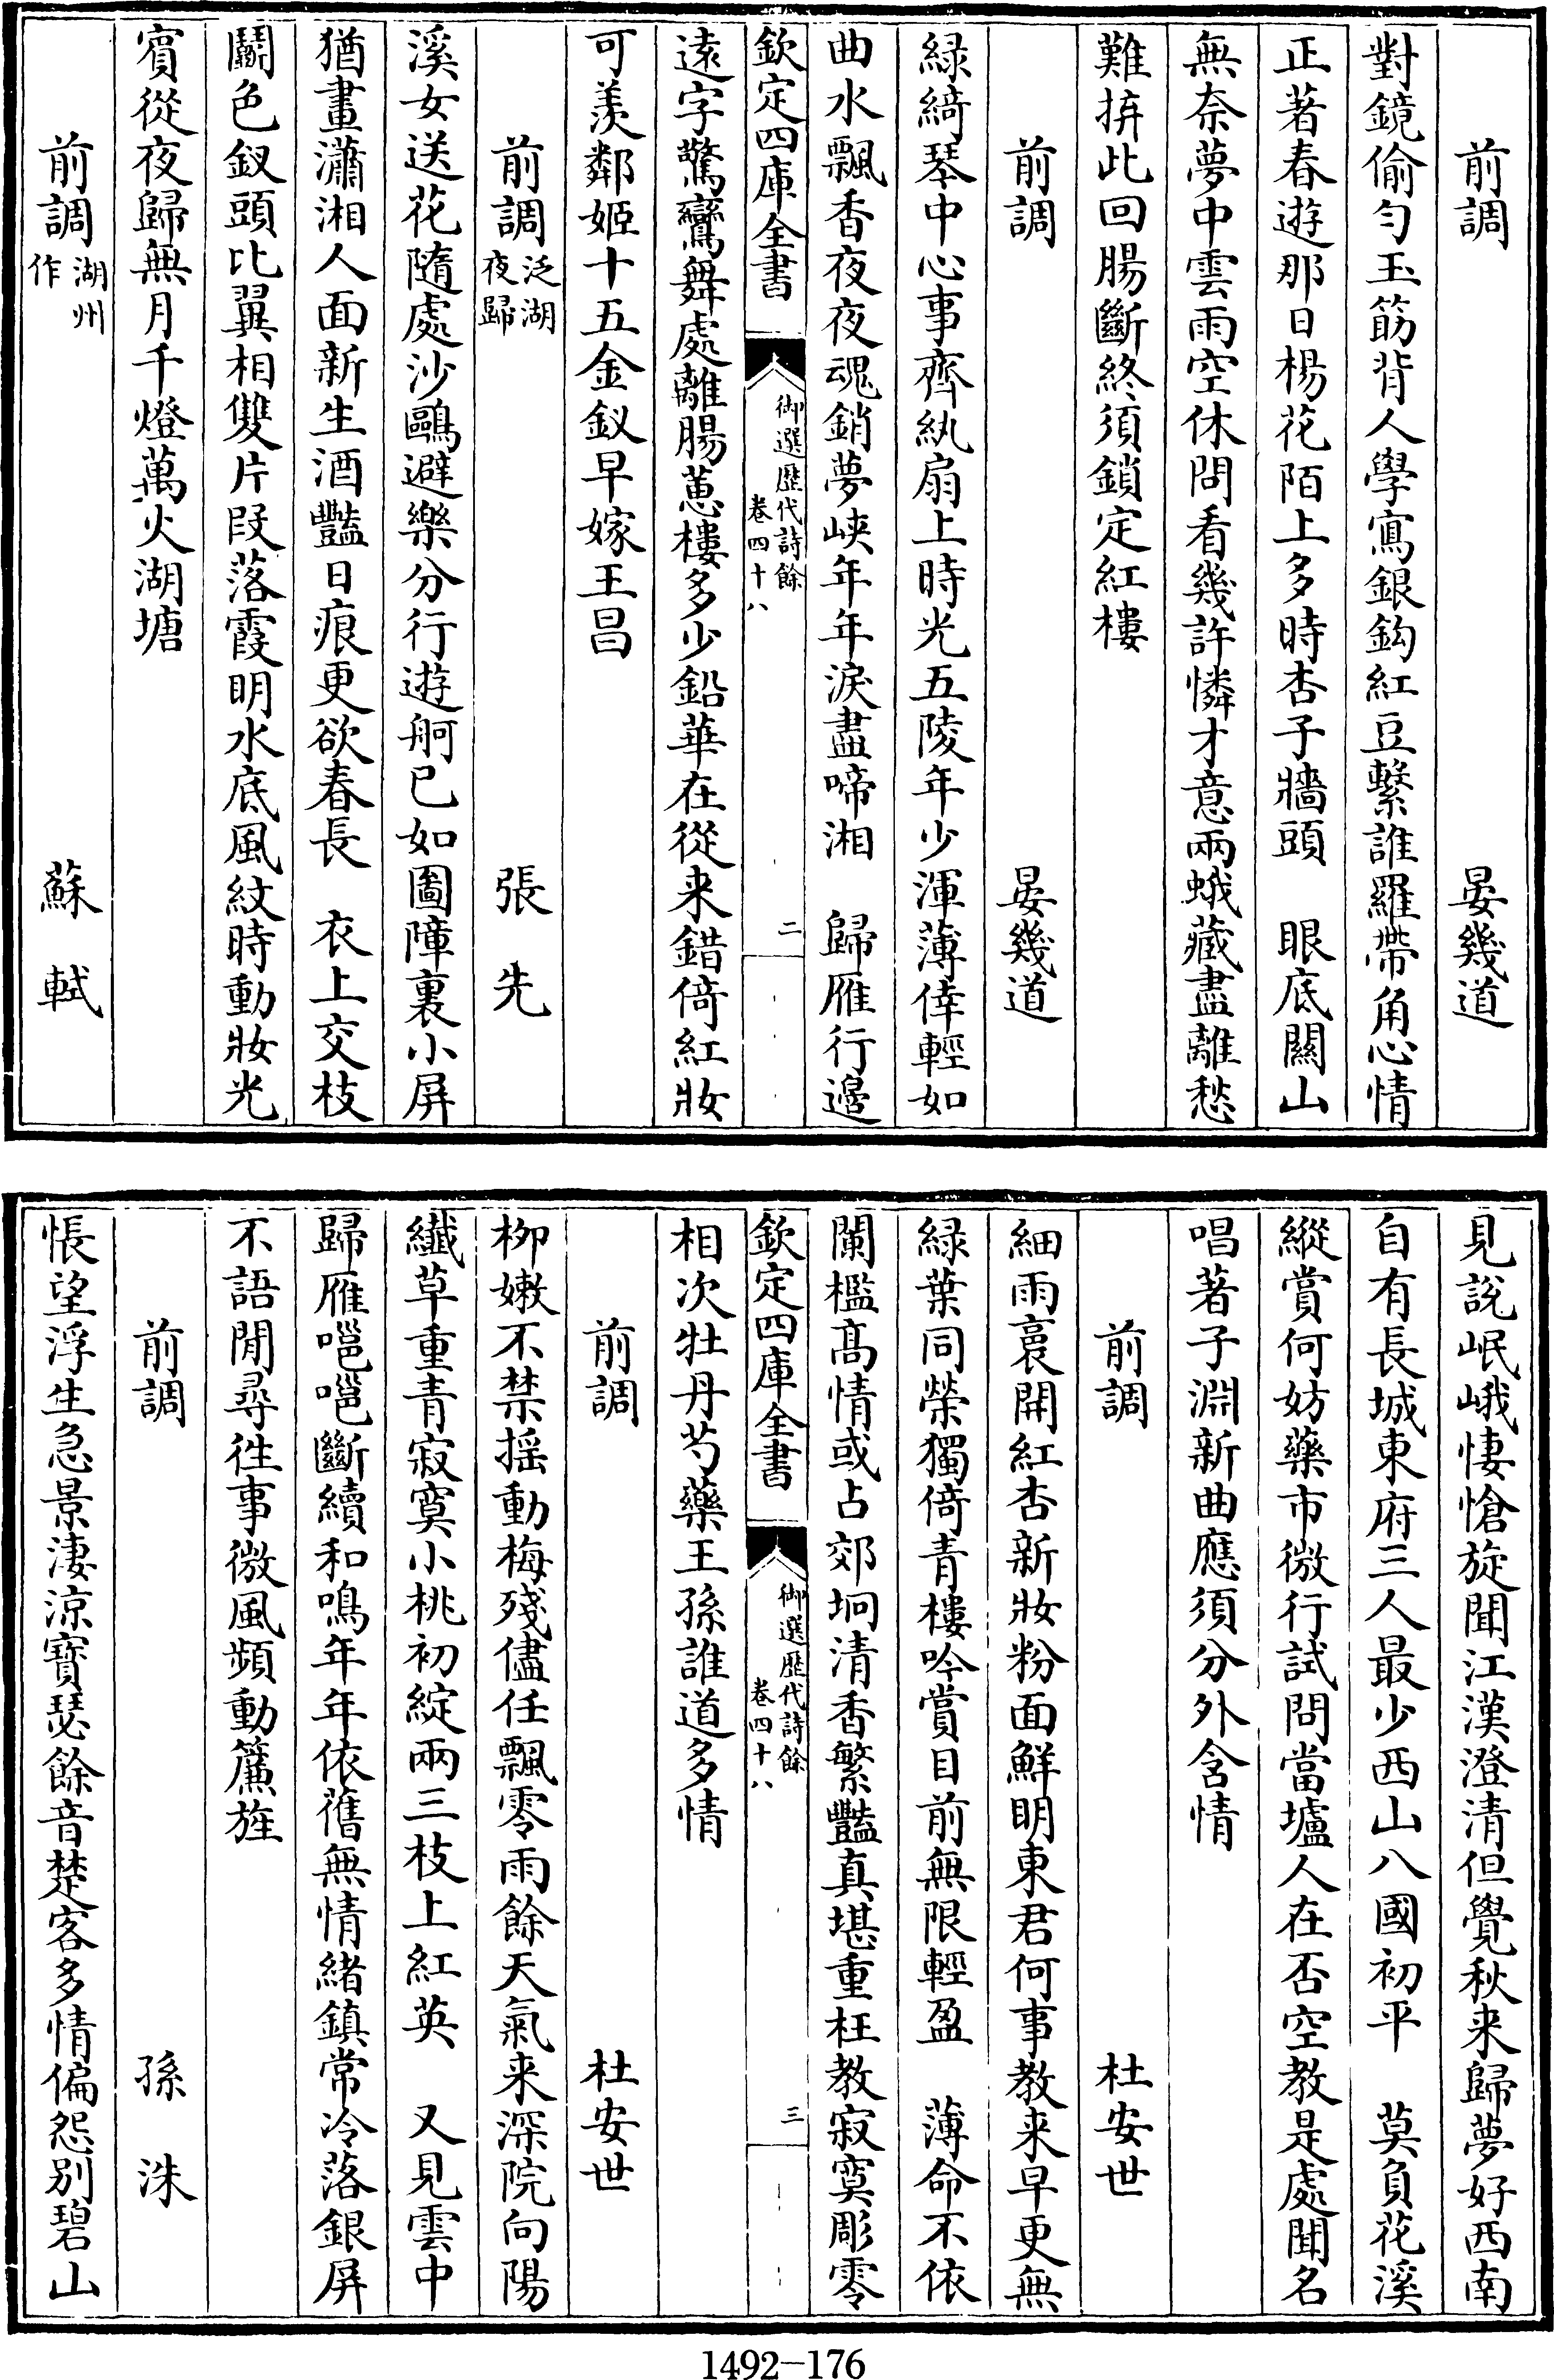 前調　晏幾道
對鏡偷勻玉筯背人學寫銀鈎紅豆繫誰羅帶角心情
正著春遊那日楊花陌上多時杏子牆頭　眼底關山
無奈夢中雲雨空休問看幾許憐才意兩蛾藏盡離愁
難拚此回腸斷終須鎖定紅樓
前調　晏幾道
緑綺琴中心事齊紈扇上時光五陵年少渾薄倖輕如
曲水飄香夜夜魂銷夢峽年年淚盡啼湘　歸雁行邊
欽定四庫全書　御選歷代詩餘　卷四十八　二
逺字驚鸞舞處離腸蕙樓多少鉛華在從来錯倚紅妝
可羨鄰姬十五金釵早嫁王昌
前調泛湖夜歸　張先
溪女送花隨處沙鷗避樂分行遊舸已如圖障裏小屏
猶畫瀟湘人面新生酒豔日痕更欲春長　衣上交枝
鬭色釵頭比翼相雙片段落霞明水底風紋時動妝光
賓從夜歸無月千燈萬火湖塘
前調湖州作　蘇軾
見說岷峨悽愴旋聞江漢澄清但覺秋来歸夢好西南
自有長城東府三人最少西山八國初平　莫負花溪
縱賞何妨藥市微行試問當壚人在否空教是處聞名
唱著子淵新曲應須分外含情
前調　杜安世
細雨裛開紅杏新妝粉面鮮明東君何事教来早更無
緑葉同榮獨倚青樓吟賞目前無限輕盈　薄命不依
闌檻髙情或占郊坰清香繁豔真堪重枉教寂寞彫零
欽定四庫全書　御選歷代詩餘　卷四十八　三
相次牡丹芍藥王孫誰道多情
前調　杜安世
柳嫩不禁揺動梅殘儘任飄零雨餘天氣来深院向陽
纎草重青寂寞小桃初綻兩三枝上紅英　又見雲中
歸雁嗈嗈斷續和鳴年年依舊無情緒鎮常冷落銀屏
不語閒尋徃事微風頻動簾旌
前調　孫洙
悵望浮生急景淒涼寶瑟餘音楚客多情偏怨别碧山
1492-176